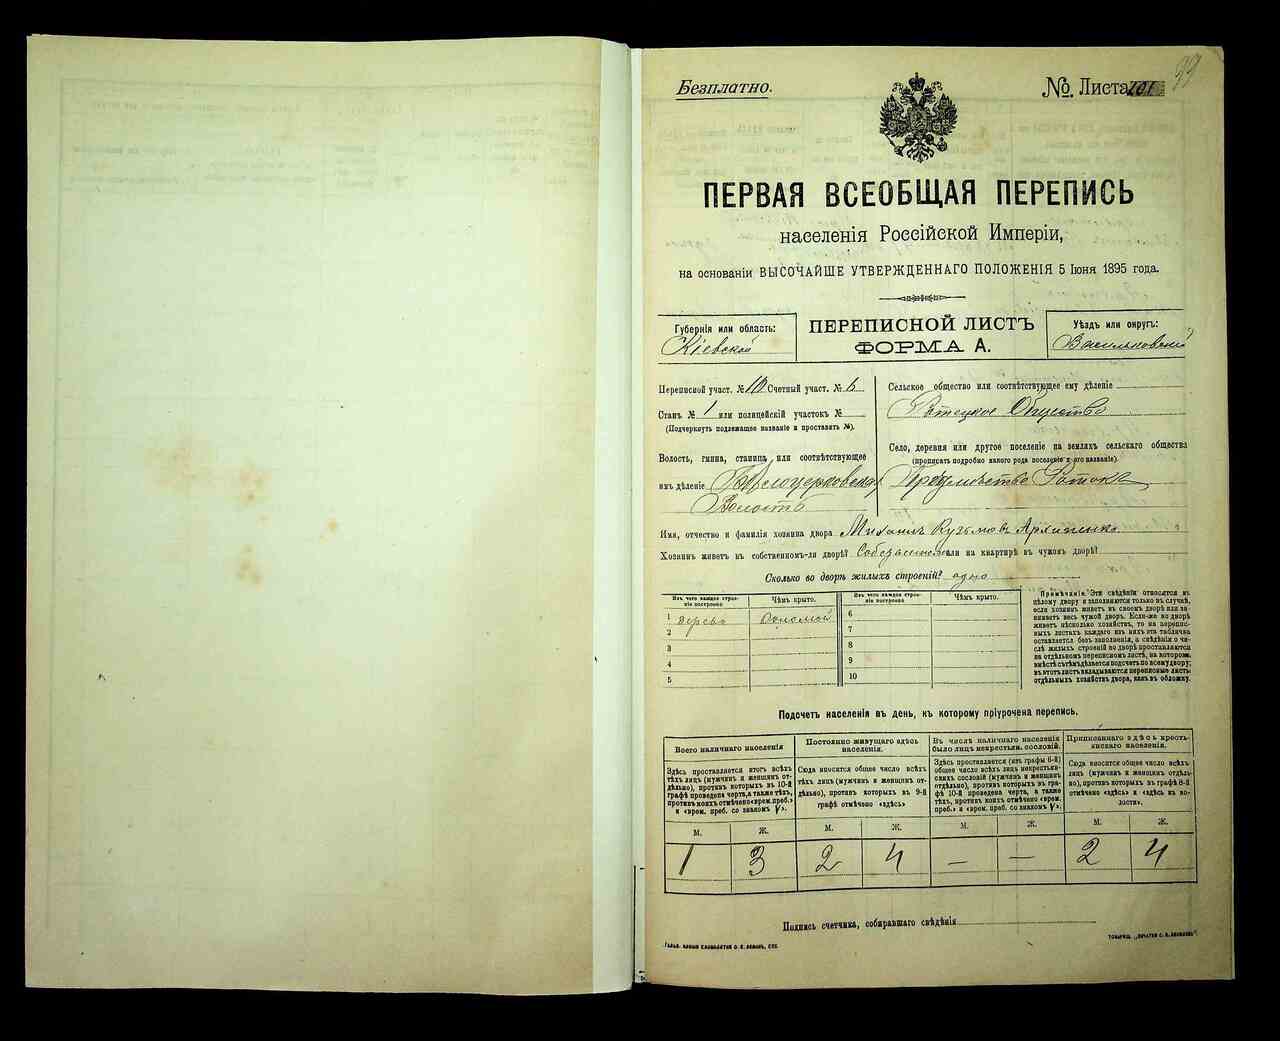 Безплатно.
№ Листа 101
33
ПЕРВАЯ ВСЕОБЩАЯ ПЕРЕПИСЬ
населенія Россійской Имперіи,
на основаніи ВЫСОЧАЙШЕ УТВЕРЖДЕННАГО ПОЛОЖЕНІЯ 5 Іюня 1895 года.
Губернія или область:
Кіевской
ПЕРЕПИСНОЙ ЛИСТЪ
ФОРМА А.
Уѣздъ или округъ:
Васильковскій
Переписной участ. № 10 Счетный участ. № 6
Станъ № 1 или полицейскій участокъ №
(Подчеркнуть подлежащее названіе и проставить №).
Волость, гмина, станица или соотвѣтствующее
имъ дѣленіе Бѣлоцерковская
Волость
Сельское общество или соотвѣтствующее ему дѣленіе
Ротецкое Общество
Село, деревня или другое поселеніе на земляхъ сельскаго общества
(прописать подробно какого рода поселеніе и его названіе).
Предмѣстье Ротокъ
Имя, отчество и фамилія хозяина двора Михаилъ Кузьмовъ Архипенко
Хозяинъ живетъ въ собственномъ-ли дворѣ? Собственномъ или на квартирѣ въ чужомъ дворѣ?
Сколько во дворѣ жилыхъ строеній? одно
Изъ чего каждое строеніе построено
Чѣмъ крыто.
Изъ чего каждое строеніе построено
Чѣмъ крыто.
1 дерево Соломой
2
3
4
5
6
7
8
9
10
Примѣчаніе. Эти свѣдѣнія относятся къ
цѣлому двору и заполняются только въ случаѣ,
если хозяинъ живетъ въ своемъ дворѣ или занимаетъ
весь чужой дворъ. Если-же во дворѣ
живетъ нѣсколько хозяйствъ, то на переписныхъ
листахъ каждаго изъ нихъ эта табличка
оставляется безъ заполненія, а свѣдѣнія о числѣ
жилыхъ строеній во дворѣ проставляются
на отдѣльномъ переписномъ листѣ, на которомъ
вмѣстѣ съ тѣмъ дѣлается подсчетъ по всему двору;
въ этотъ листъ вкладываются переписные листы
отдѣльныхъ хозяйствъ двора, какъ въ обложку.
Подсчетъ населенія въ день, къ которому пріурочена перепись.
Всего наличнаго населенія
Постоянно живущаго здѣсь
населенія.
Въ числѣ наличнаго населенія
было лицъ некрестьян. сословій.
Приписаннаго здѣсь крестьянскаго
населенія.
Здѣсь проставляется итогъ всѣхъ
тѣхъ лицъ (мужчинъ и женщинъ отдѣльно),
противъ которыхъ въ 10-й
графѣ проведена черта, а также тѣхъ,
противъ коихъ отмѣчено «врем. преб.»
и «врем. преб. со знакомъ V».
Сюда вносится общее число всѣхъ
тѣхъ лицъ (мужчинъ и женщинъ отдѣльно),
противъ которыхъ въ 9-й
графѣ отмѣчено «здѣсь»
Здѣсь проставляется (изъ графы 6-й)
общее число всѣхъ лицъ некрестьянскихъ
сословій (мужчинъ и женщинъ
отдѣльно), противъ которыхъ въ графѣ
10-й проведена черта, а также
тѣхъ, противъ коихъ отмѣчено «врем.
преб.» и «врем. преб. со знакомъ V».
Сюда вносится общее число всѣхъ
лицъ (мужчинъ и женщинъ отдѣльно),
противъ которыхъ въ графѣ 8-й
отмѣчено «здѣсь» и «здѣсь въ волости».
М. Ж. М. Ж. М. Ж. М. Ж.
1 3 2 4 — — 2 4
Подпись счетчика, собиравшаго свѣдѣнія